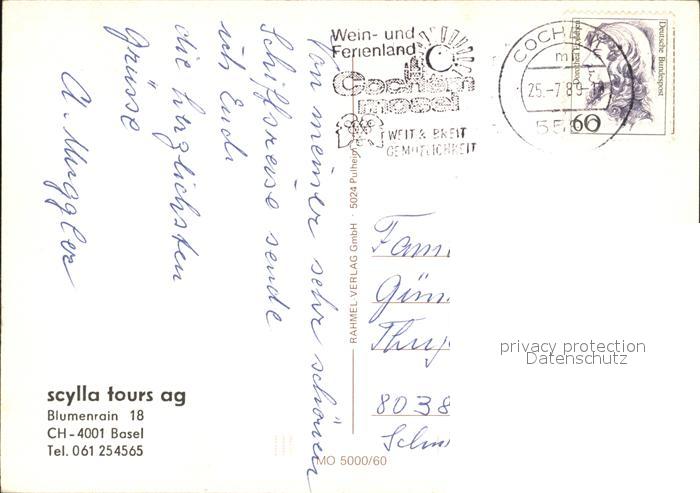 Von meiner sehr schönen
Schiffsreise sende
ich Euch
die herzlichsten
Grüsse
A. Muggler
scylla tours ag
Blumenrain 18
CH-4001 Basel
Tel. 061 254565
RAHMEL-VERLAG GmbH · 5024 Pulheim
MO 5000/60
Wein- und
Ferienland
Cochem
mosel
WEIT & BREIT
GEMÜTLICHKEIT
COCHEM
25.-7.89
Deutsche Bundespost
60
Fam.
Gün
Thu
8038
privacy protection
Datenschutz